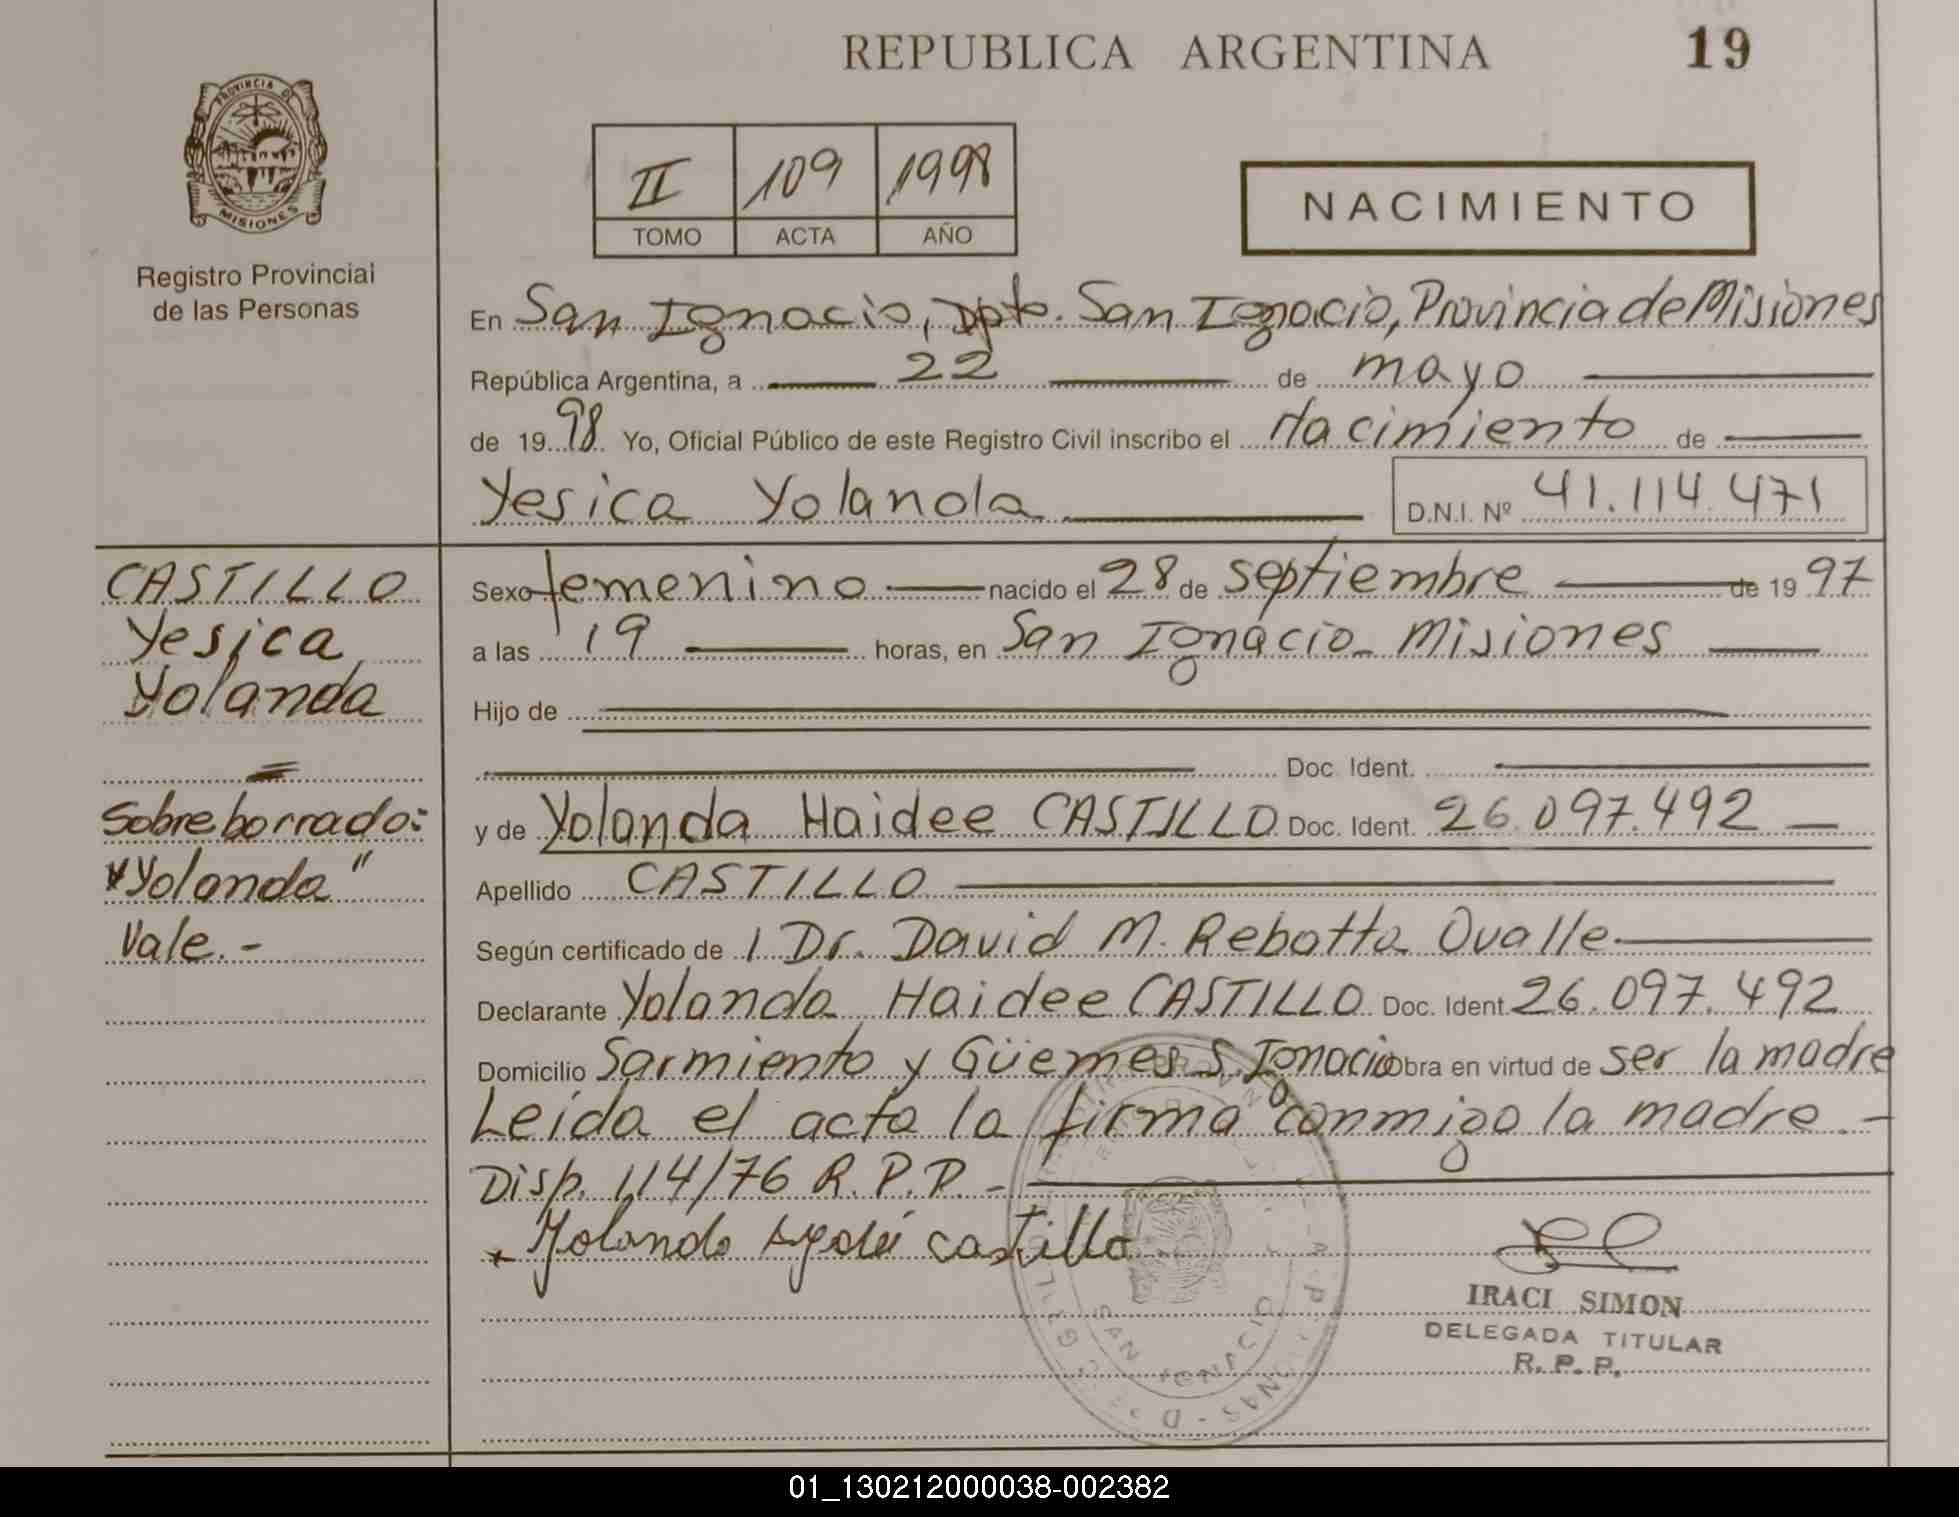 REPUBLICA ARGENTINA
19
PROVINCIA D
MISIONES
Registro Provincial
de las Personas
II 109 1998
TOMO ACTA AÑO
NACIMIENTO
En San Ignacio, Dpto. San Ignacio, Provincia de Misiones
República Argentina, a 22 de mayo
de 1998 Yo, Oficial Público de este Registro Civil inscribo el Nacimiento de
Yesica Yolanda
D.N.I. Nº 41.114.471
CASTILLO
Yesica
Yolanda
Sobreborrado:
"Yolanda"
Vale.-
Sexo femenino nacido el 28 de septiembre de 1997
a las 19 horas, en San Ignacio_ Misiones
Hijo de
Doc. Ident.
y de Yolanda Haidee CASTILLO Doc. Ident. 26.097.492
Apellido CASTILLO
Según certificado de l Dr. David M. Rebotta Ovalle
Declarante Yolanda Haidee CASTILLO Doc. Ident. 26.097.492
Domicilio Sarmiento y Güemes S. Ignacio Obra en virtud de ser la madre
Leída el acta la firma conmigo la madre.-
Disp. 114/76 R.P.P.-
Yolanda Aydeé Castillo
SAN IGNACIO
IRACI SIMON
DELEGADA TITULAR
R. P. P.
01_130212000038-002382